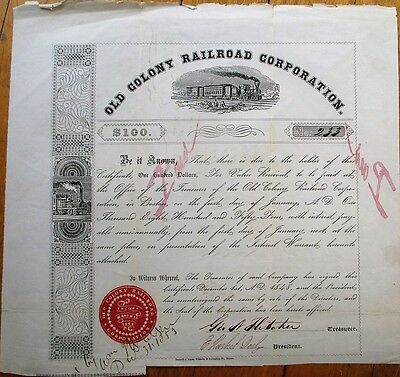 OLD COLONY RAILROAD CORPORATION.
$100.
233
Be it Known, That, there is due to the holder of this
Certificate, One Hundred Dollars, For Value Received, to be paid at
the Office of the Treasurer of the Old Colony Railroad Corpo-
ration, in Boston, on the first day of January, A.D. One
Thousand Eight Hundred and Fifty-Four, with interest, pay-
able semi-annually, from the first day of January next, at the
same place, on presentation of the Interest Warrant, hereunto
attached.
In Witness Whereof, The Treasurer of said Company has signed this
Certificate, December 1st, A.D. 1848, and the President,
has countersigned the same by vote of the Directors, and
the Seal of the Corporation has been hereto affixed.
Treasurer.
President.